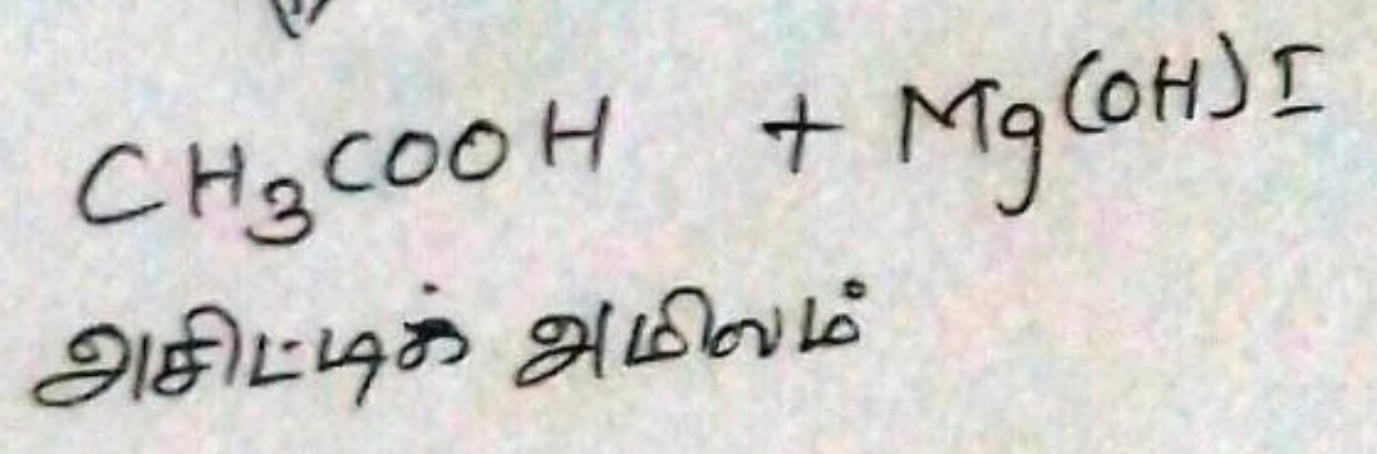 CH₃COOH + Mg(OH)I
அசிட்டிக் அமிலம்